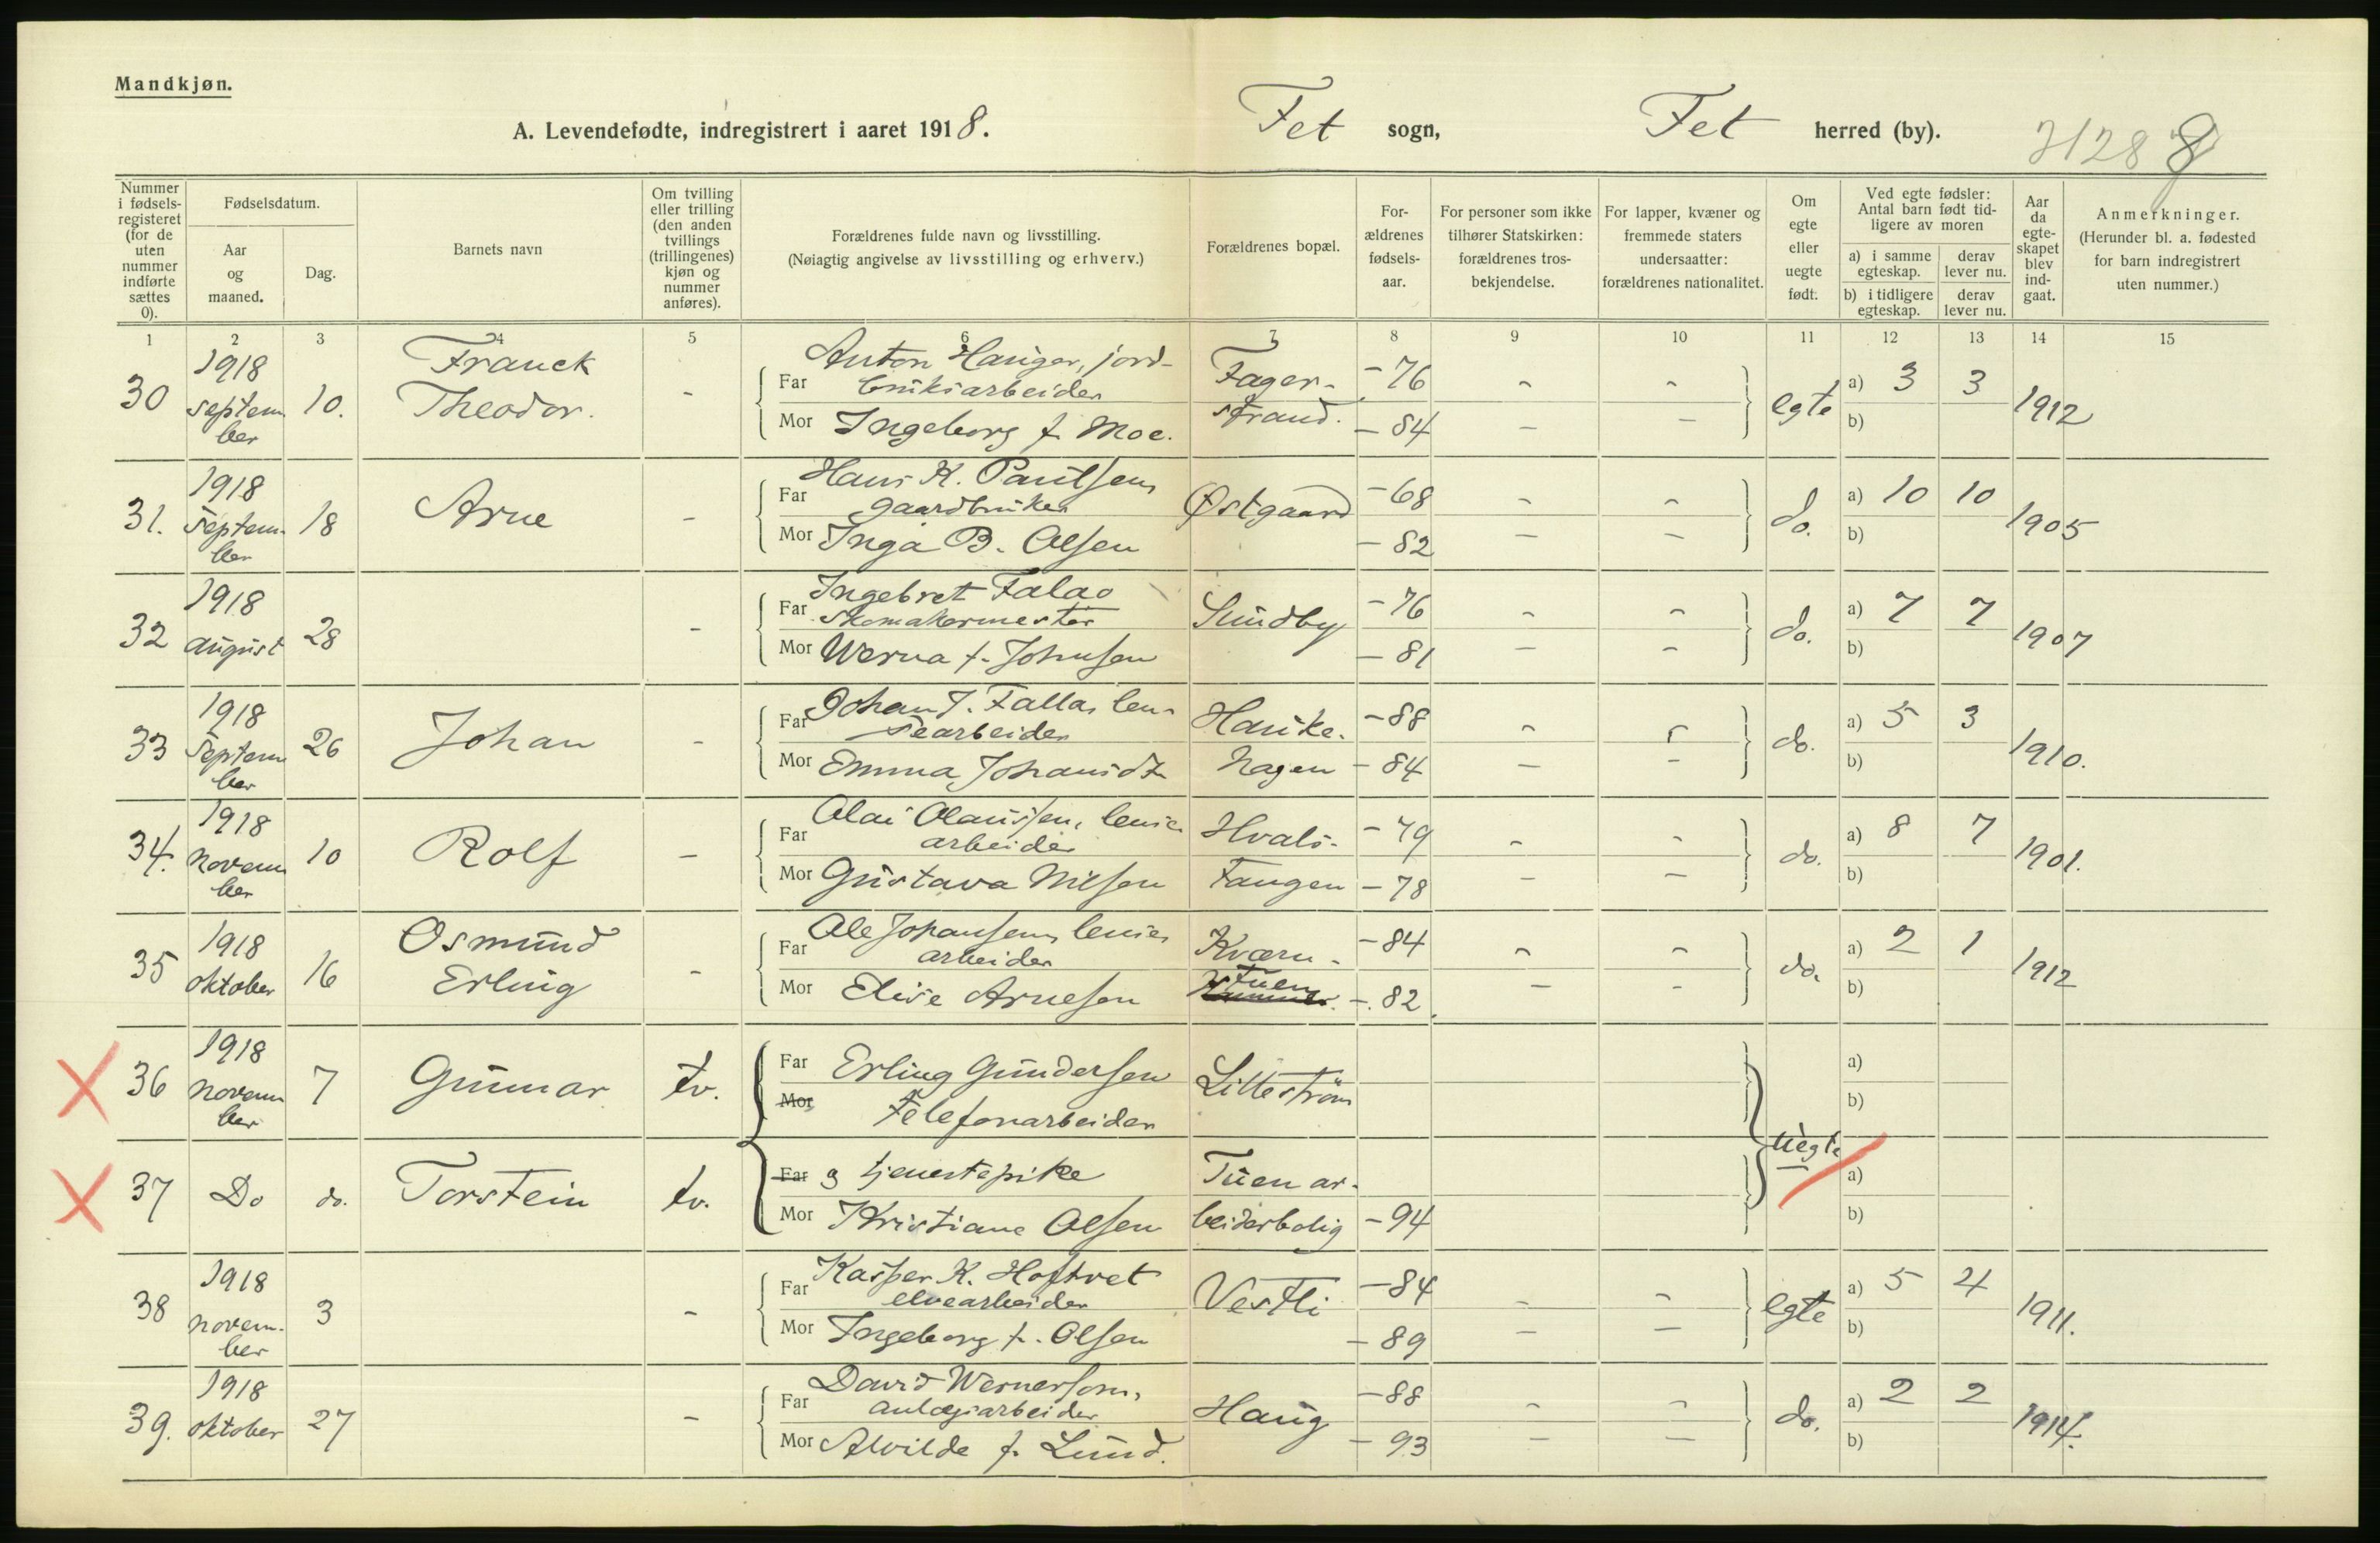 Mandkjøn.
A. Levendefødte, indregistrert i aaret 1918. Fet sogn, Fet herred (by).
Nummer i fødsels-registeret (for de uten nummer indførte sættes 0).
Fødselsdatum.
Aar og maaned.
Dag.
Barnets navn
Om tvilling eller trilling (den anden tvillings (trillingenes) kjøn og nummer anføres).
Forældrenes fulde navn og livsstilling.
(Nøiagtig angivelse av livsstilling og erhverv.)
Forældrenes bopæl.
For-ældrenes fødsels-aar.
For personer som ikke tilhører Statskirken: forældrenes tros-bekjendelse.
For lapper, kvæner og fremmede staters undersaatter: forældrenes nationalitet.
Om egte eller uegte født.
Ved egte fødsler: Antal barn født tid-ligere av moren
a) i samme egteskap. derav lever nu.
b) i tidligere egteskap. derav lever nu.
Aar da egte-skapet blev ind-gaat.
Anmerkninger.
(Herunder bl. a. fødested for barn indregistrert uten nummer.)
1 2 3 4 5 6 7 8 9 10 11 12 13 14 15
30 1918 septem ber 10. Franck Theodor. -
Far Anton Hauger, jord-
bruksarbeider Fager- -76
Mor Ingeborg f. Moe. strand. -84 egte a) 3 3 b) 1912
31. 1918 Septem- ber 18 Arne -
Far Hans K. Paulsen,
gaardbruker Østgaard -68
Mor Inga B. Olsen -82 do. a) 10 10 b) 1905
32 1918 august 28 -
Far Ingebret Falao
Skomakermester Sundby -76
Mor Werna f. Johnsen -81 do. a) 7 7 b) 1907
33 1918 Septem ber 26 Johan -
Far Johan J. Fallas len-
searbeider Hauke- -88
Mor Emma Johansdt hagen -84 do. a) 5 3 b) 1910.
34. 1918 Novem ber 10 Rolf -
Far Olai Olaussen, lense
arbeider Hvals- -79
Mor Gustava Nilsen tangen -78 do. a) 8 7 b) 1901.
35 1918 oktober 16 Osmund Erling -
Far Ole Johansen, lense
arbeider Kværn- -84
Mor Elise Arnesen tuen -82 do. a) 2 1 b) 1912
36 1918 Novem ber 7 Gunnar tv.
Far Erling Gundersen Lillestrøm a)
Mor Telefonarbeider b)
uegte
37 Do do. Torstein tv.
Far g tjenestepike Tuen ar- a)
Mor Kristiane Olsen beiderbolig -94 b)
38 1918 novem- ber 3 -
Far Kasper K. Hoftvet
elvearbeider Vestli -84
Mor Ingeborg f. Olsen -89 egte a) 5 4 b) 1911.
39. 1918 oktober 27 -
Far David Wernersson,
anlægsarbeider Haug -88
Mor Alvilde f. Lund. -93 do. a) 2 2 b) 1914.